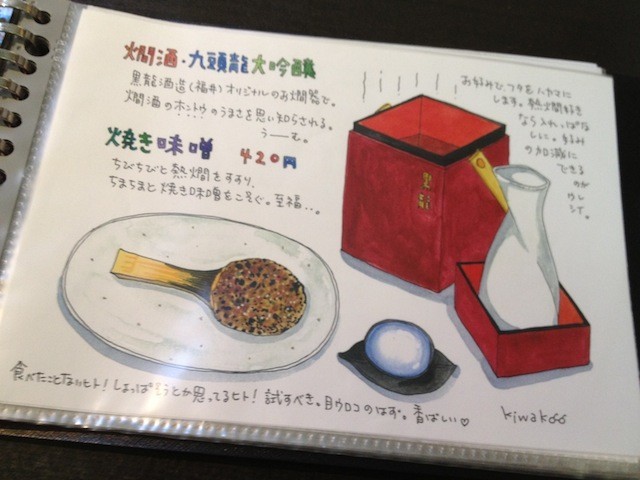 燗酒・九頭龍大吟醸
黒龍酒造(福井)オリジナルのお燗器で。
燗酒のホントゥのうまさを思い知らされる。
うーむ。
焼き味噌 420円
ちびちびと熱燗をすすり、
ちまちまと焼き味噌をころぐ。至福…。
お好みで、フタをハカマに
します。熱燗好き
なら入れっぱな
しに。好み
の加減に
できる
のが
ウレ
シイ。
黒龍
食べたことないヒト!しょっぱそうとか思ってるヒト!試すべき。目ウロコのはず。香ばしい♡
kiwakoo